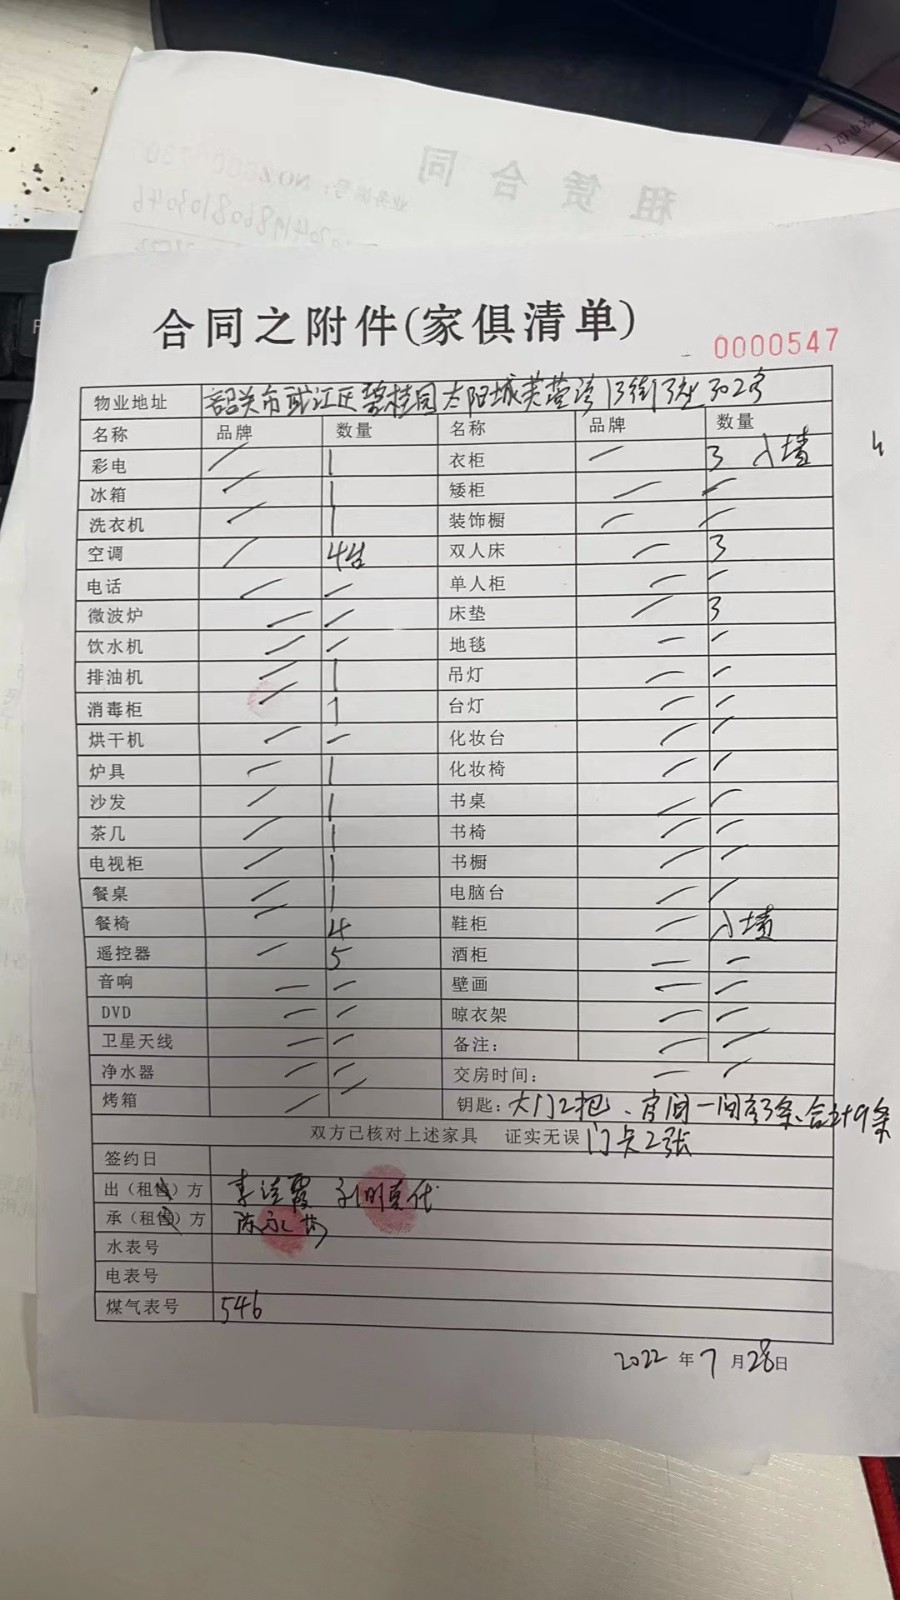 租赁合同
合同之附件(家俱清单)
0000547
物业地址 韶关市武江区碧桂园太阳城芙蓉湾13街13座302房
名称 品牌 数量 名称 品牌 数量
彩电 / 1 衣柜 / 3 入墙
冰箱 / 1 矮柜 / /
洗衣机 / 1 装饰橱 / /
空调 / 4台 双人床 / 3
电话 / / 单人柜 / /
微波炉 / / 床垫 / 3
饮水机 / / 地毯 / /
排油机 / 1 吊灯 / /
消毒柜 / 1 台灯 / /
烘干机 / / 化妆台 / /
炉具 / 1 化妆椅 / /
沙发 / 1 书桌 / /
茶几 / 1 书椅 / /
电视柜 / 1 书橱 / /
餐桌 / 1 电脑台 / /
餐椅 / 4 鞋柜 / 入墙
遥控器 / 5 酒柜 / /
音响 / / 壁画 / /
DVD / / 晾衣架 / /
卫星天线 / / 备注: / /
净水器 / / 交房时间: / /
烤箱 / / 钥匙: 大门2把、房间一间房3条、合计9条
双方已核对上述家具 证实无误 门卡2张
签约日
出(租售)方 李 霞 代
承(租售)方 陈永
水表号
电表号
煤气表号 546
2022 年 7 月 28 日